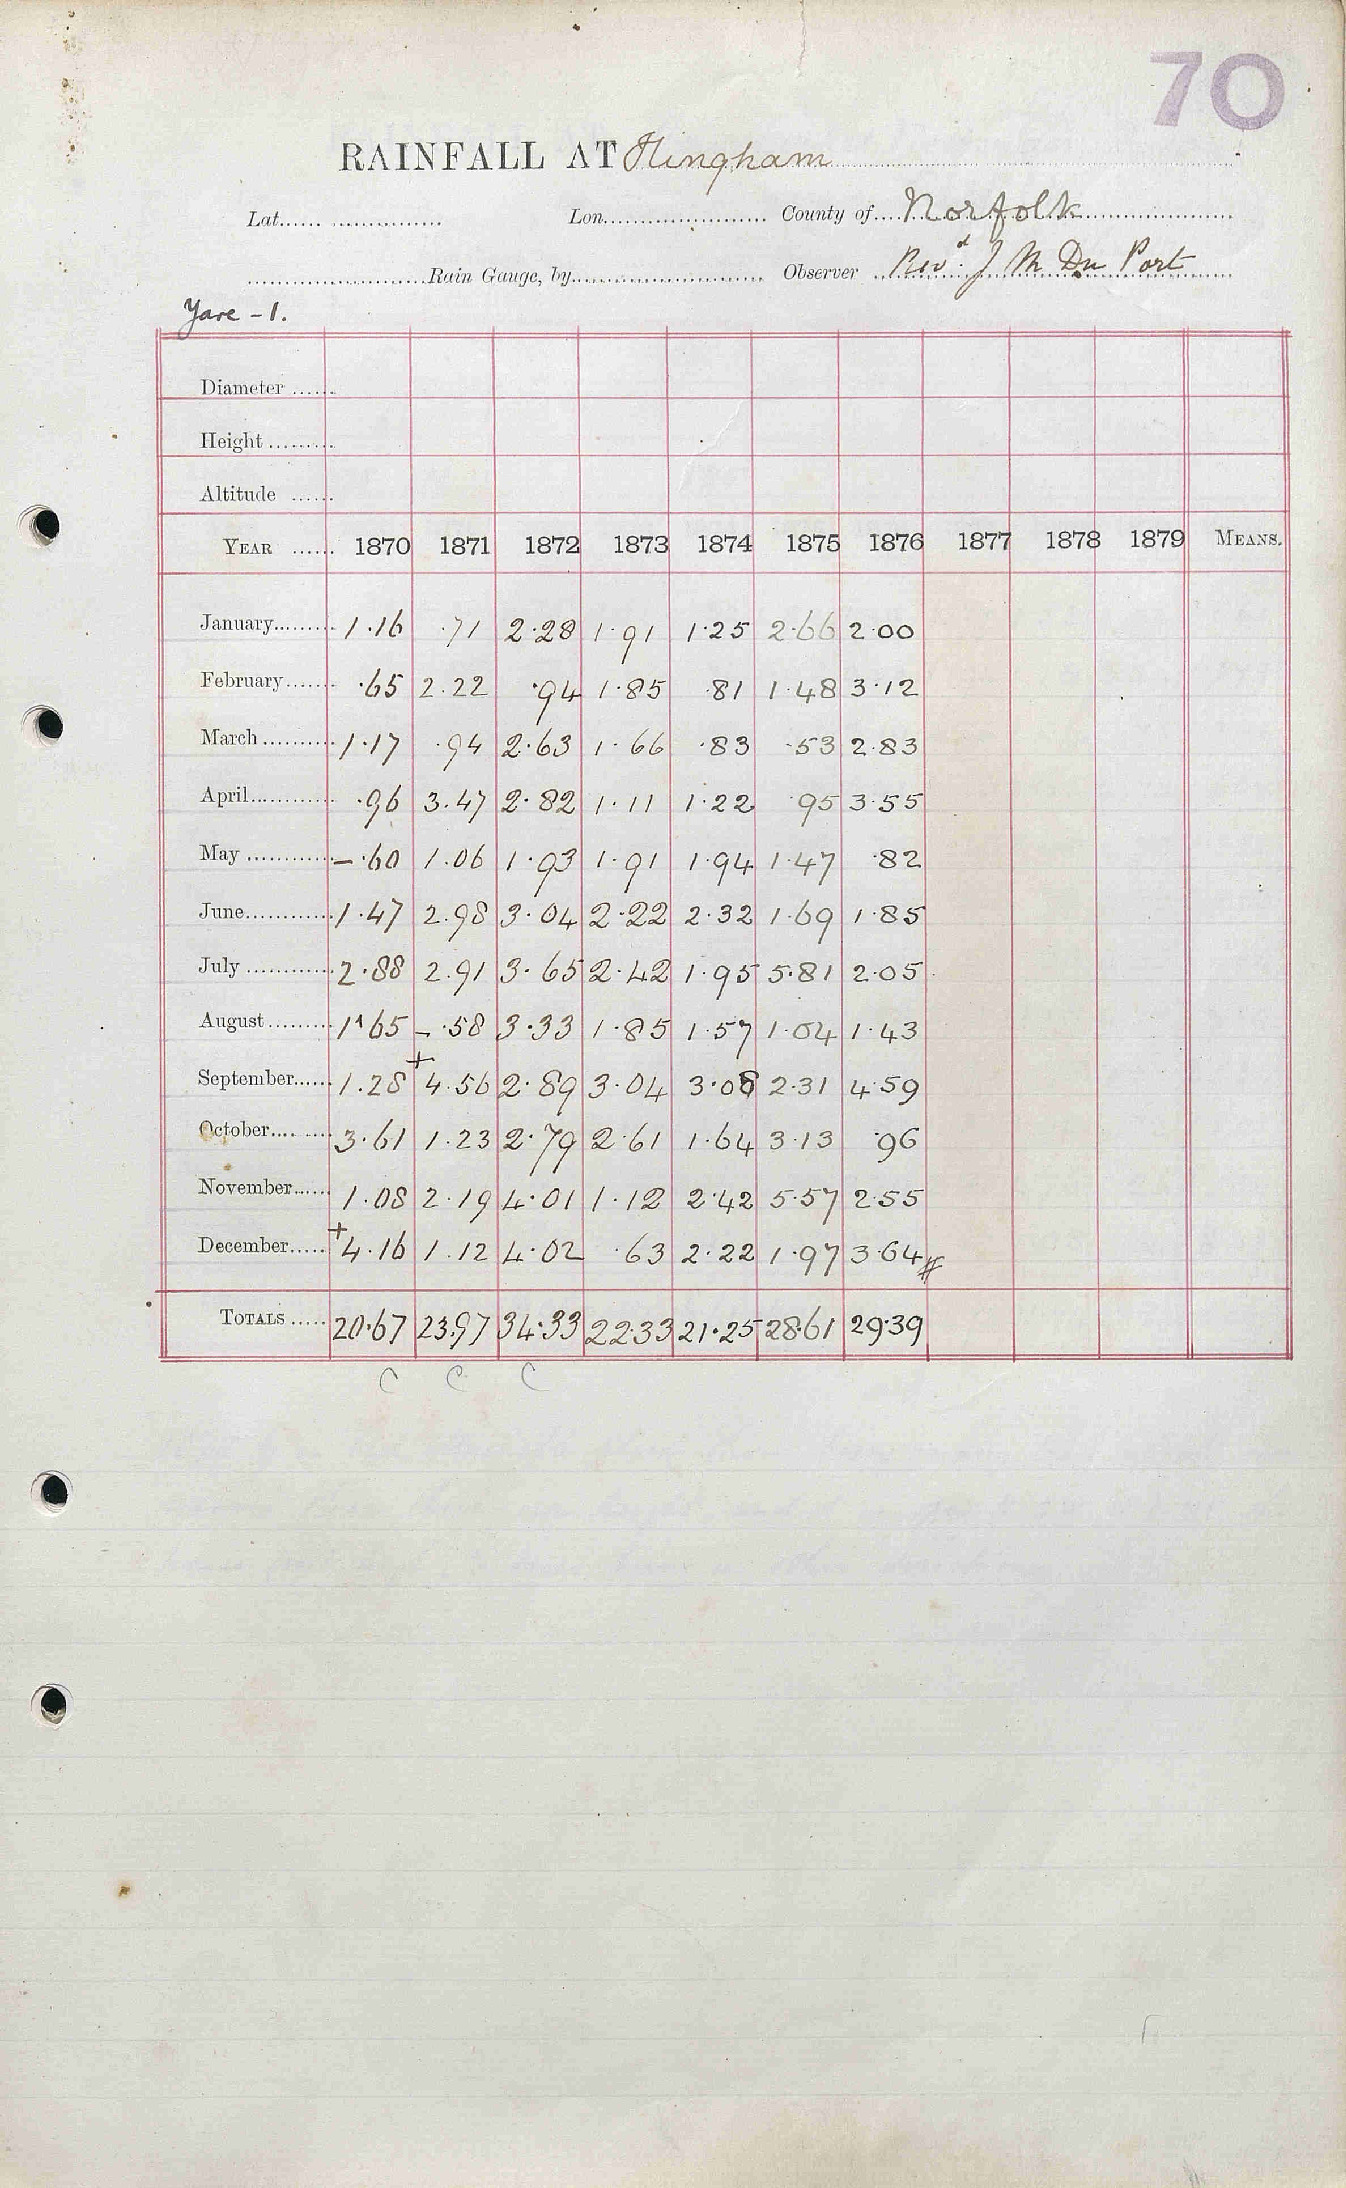 70
RAINFALL AT Hingham
Lat. Lon. County of Norfolk
Rain Gauge, by Observer Revd. J M Du Port
Yare - 1.
Diameter
Height
Altitude
YEAR 1870 1871 1872 1873 1874 1875 1876 1877 1878 1879 MEANS.
January 1.16 .71 2.28 1.91 1.25 2.66 2.00
February .65 2.22 .94 1.85 .81 1.48 3.12
March 1.17 .94 2.63 1.66 .83 .53 2.83
April .96 3.47 2.82 1.11 1.22 .95 3.55
May - .60 1.06 1.93 1.91 1.94 1.47 .82
June 1.47 2.98 3.04 2.22 2.32 1.69 1.85
July 2.88 2.91 3.65 2.42 1.95 5.81 2.05
August 1.65 - .58 3.33 1.85 1.57 1.04 1.43
September 1.28 + 4.56 2.89 3.04 3.08 2.31 4.59
October 3.61 1.23 2.79 2.61 1.64 3.13 .96
November 1.08 2.19 4.01 1.12 2.42 5.57 2.55
December + 4.16 1.12 4.02 .63 2.22 1.97 3.64 #
TOTALS 20.67 23.97 34.33 22.33 21.25 28.61 29.39
C C C